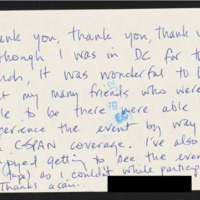 ank you, thank you, thank
though I was in DC for t
ch. It was wonderful to
t my many friends who were
le to be there were able
perience the event by way
C-SPAN coverage. I've also
joyed getting to see the even
(tape) as I couldn't while particip
Thanks again..